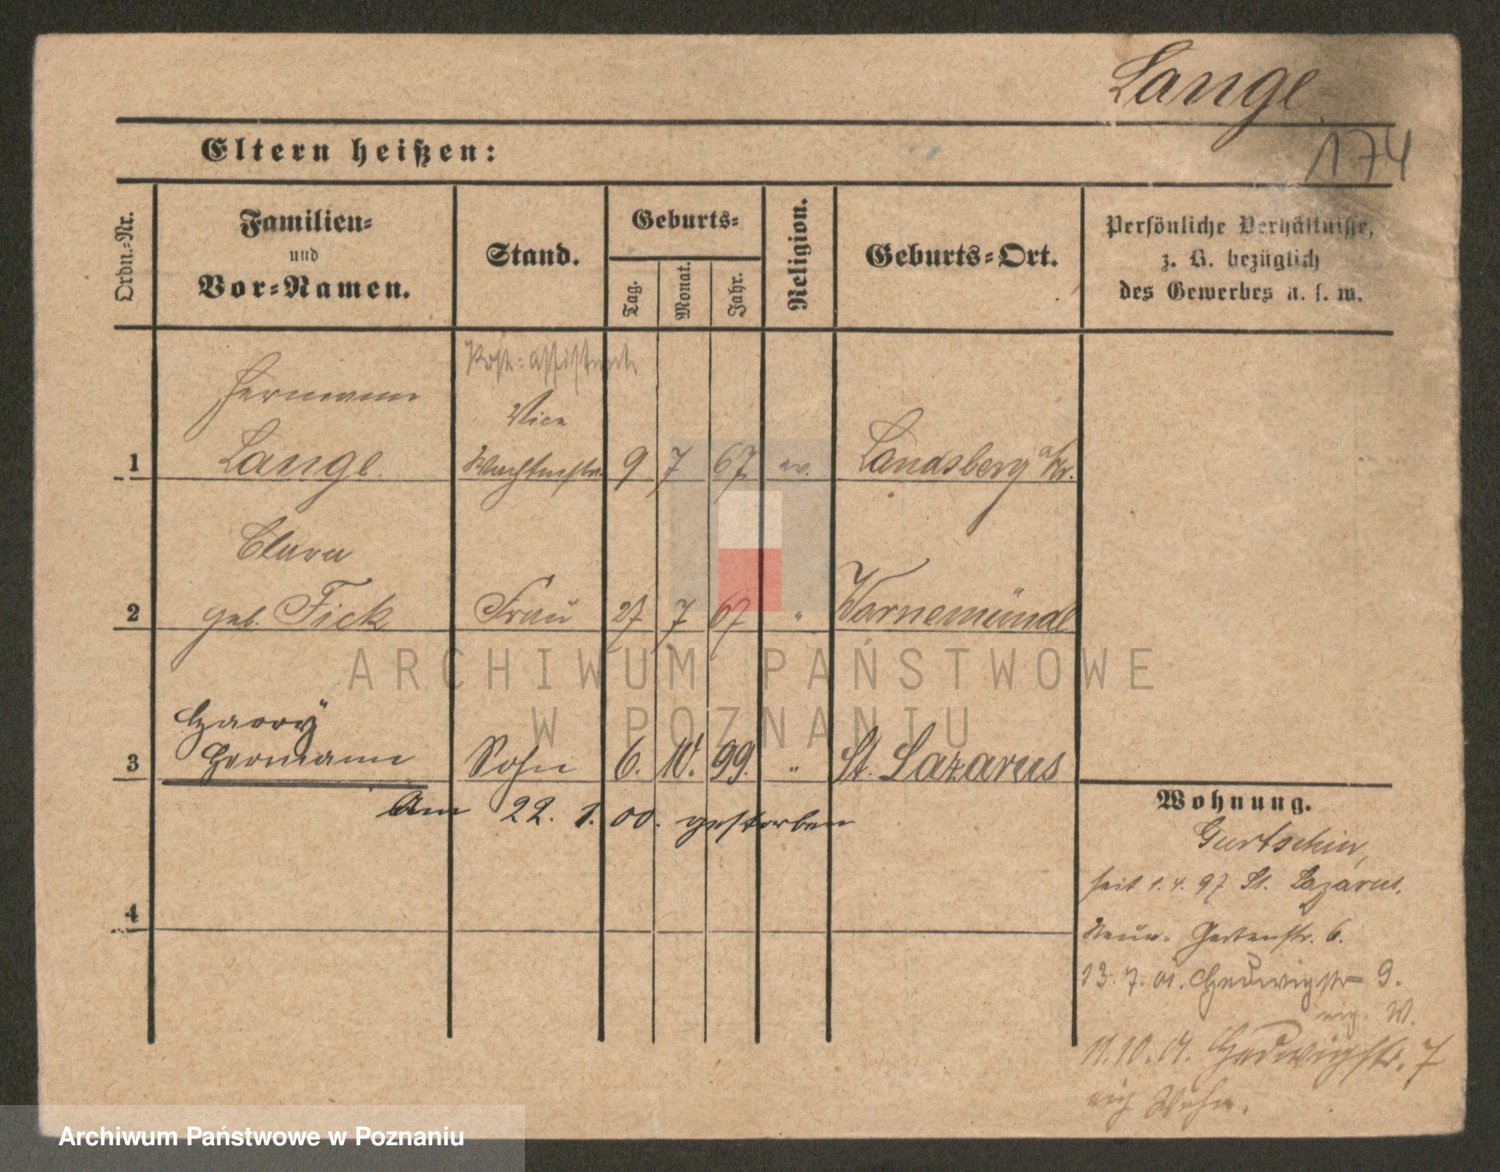 Lange
174
Eltern heißen:
Ordn.-Nr.
Familien-
und
Vor-Namen.
Stand.
Geburts-
Tag.
Monat.
Jahr.
Religion.
Geburts-Ort.
Persönliche Verhältnisse,
z. B. bezüglich
des Gewerbes u. s. w.
Post-assistent
Hermann
Vice
1 Lange. Wachtmstr. 9 7 67. ev. Landsberg a/W.
Clara
2 geb. Fick Frau 27 7 67 " Warnemünde
Harry
3 Hermann Sohn 6. 10. 99. " St. Lazarus
Am 22. 1. 00. gestorben
4
Wohnung.
Gurtschin,
seit 1. 4. 97 St. Lazarus,
Neue Gartenstr. 6.
13. 7. 01. Hedwigstr 9.
eig. W.
11.10.01. Hedwigstr. 7
eig Wohn.
ARCHIWUM PAŃSTWOWE
W POZNANIU
Archiwum Państwowe w Poznaniu